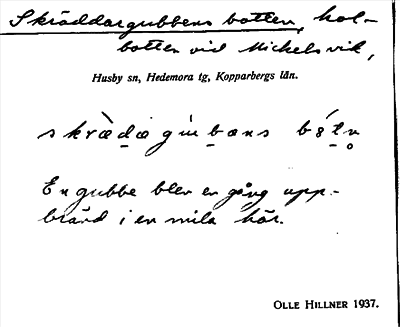 Skräddargubbens botten, kol-
botten vid Mickelsvik,
Husby sn, Hedemora tg, Kopparbergs län.
En gubbe blev en gång upp-
bränd i en mila här.
OLLE HILLNER 1937.